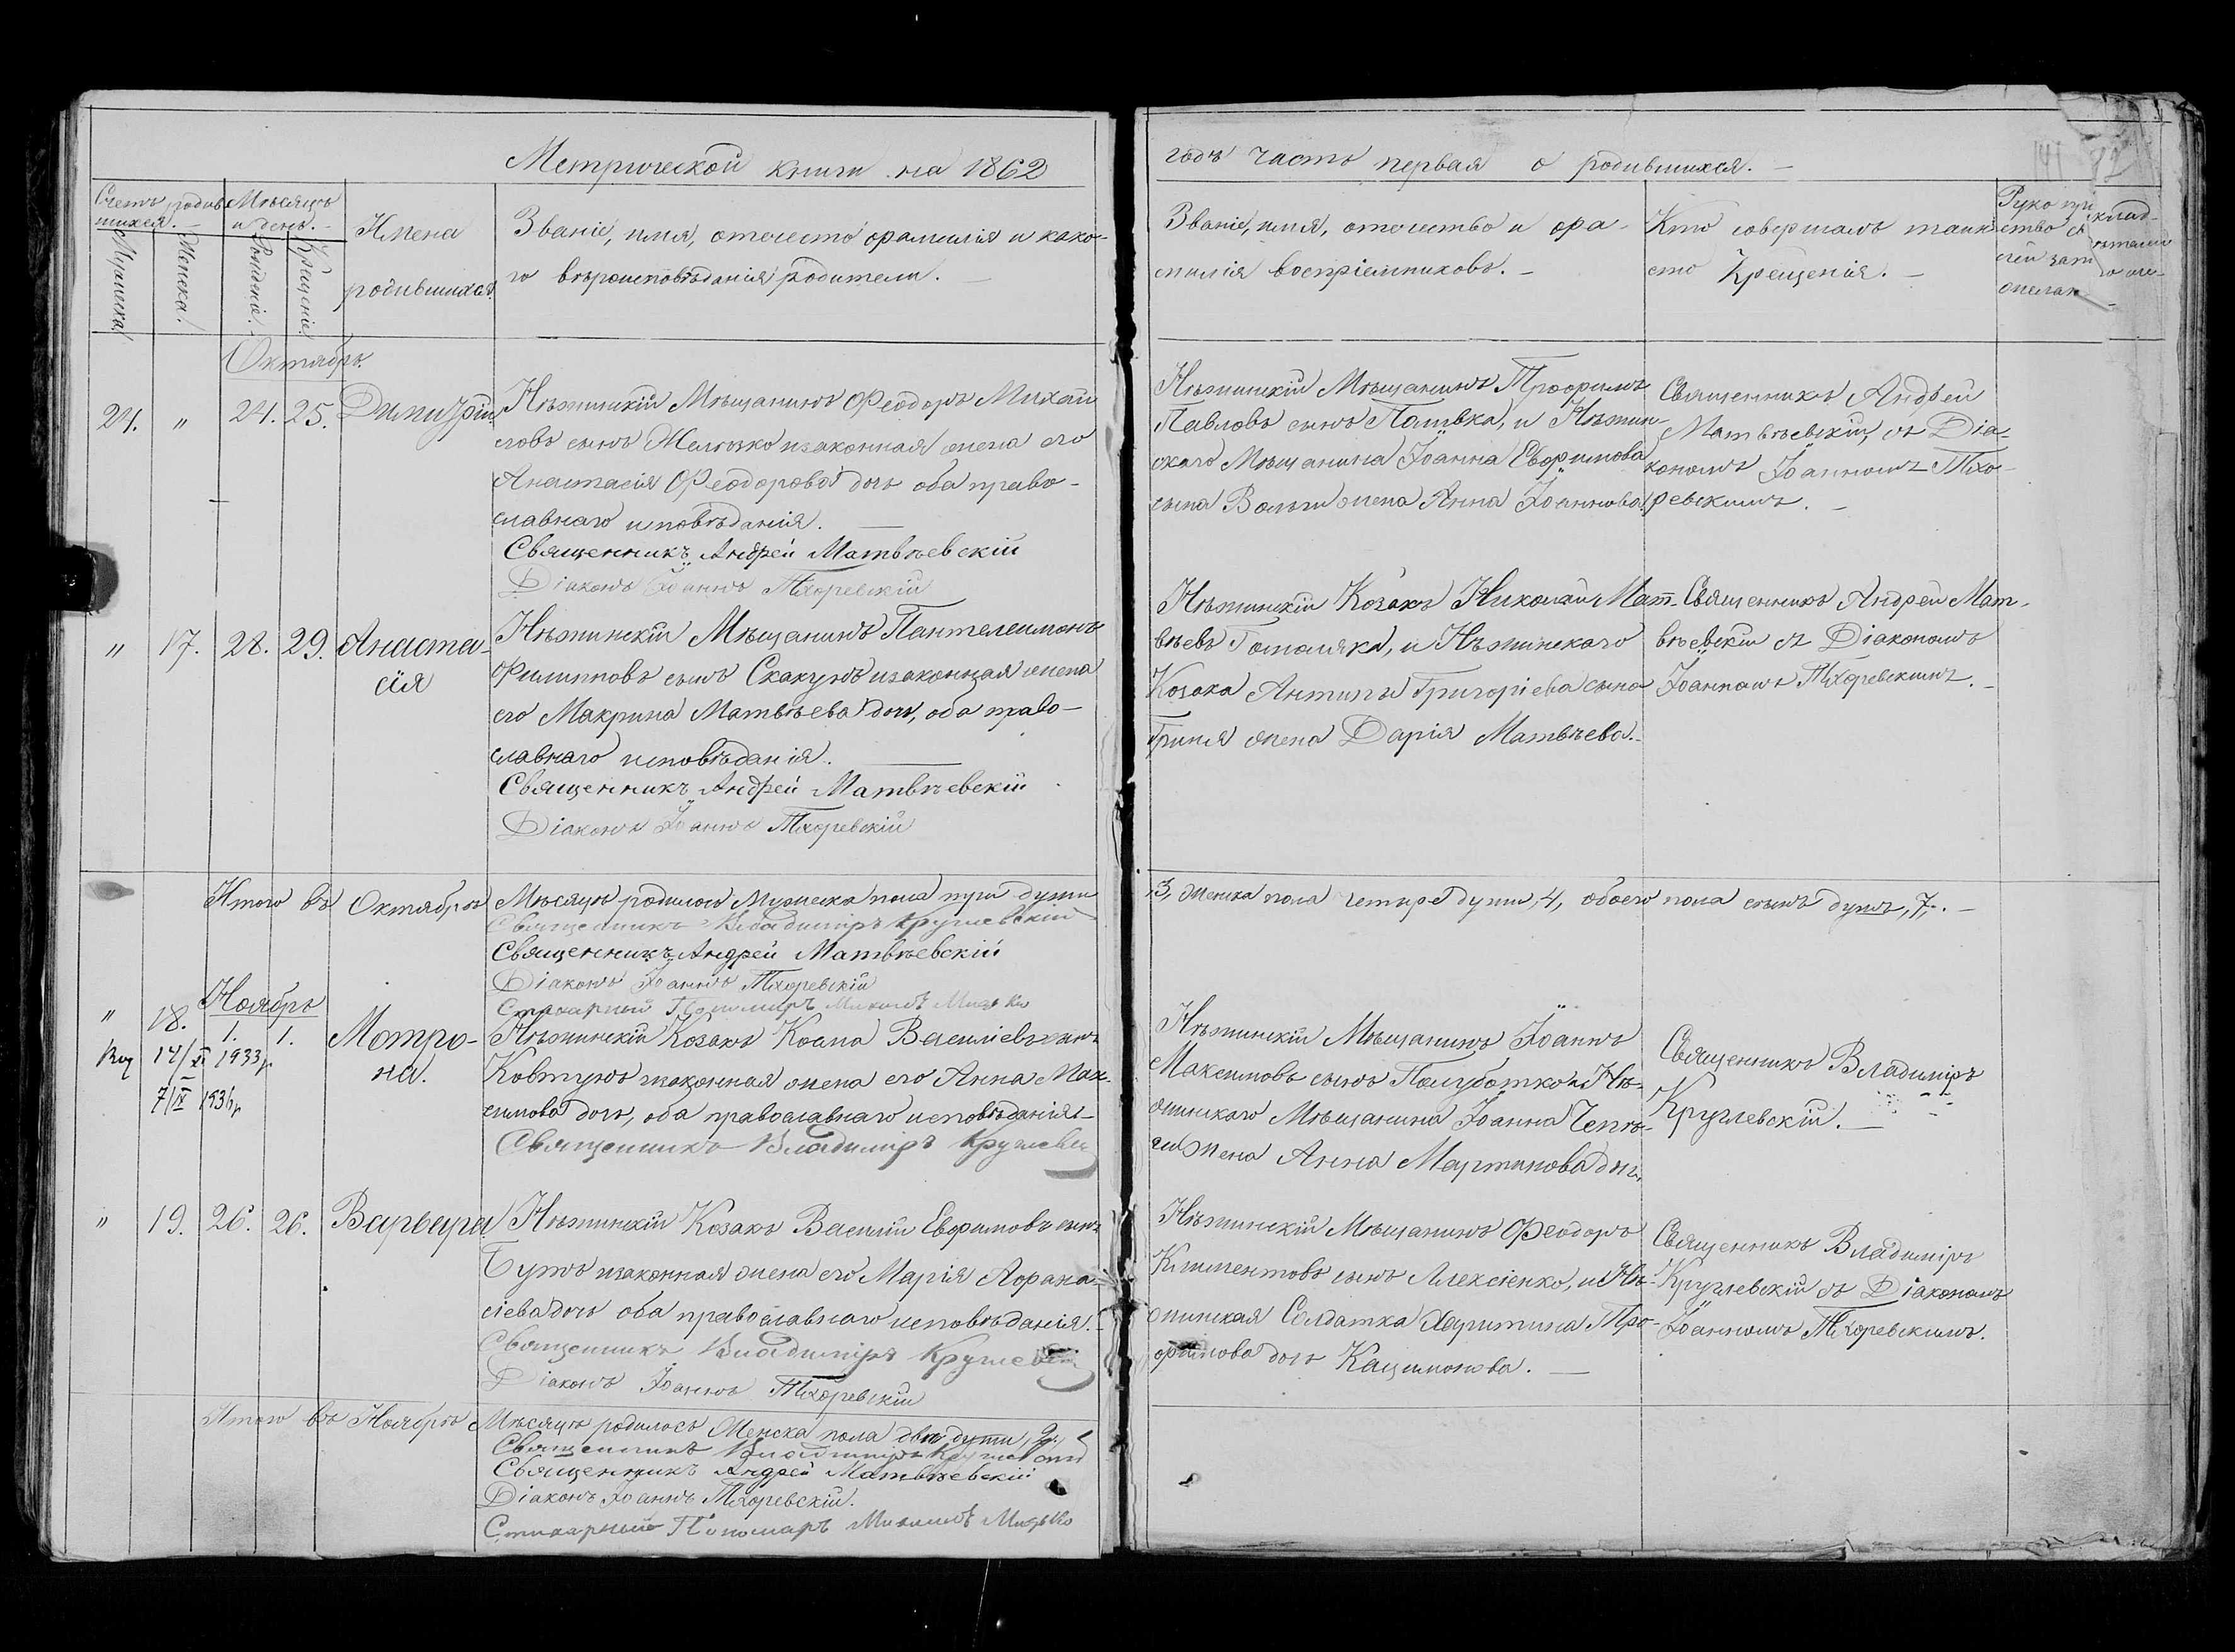 Метрической книги на 1862
годъ часть первая о родившихся. —
Счетъ родив
шихся. —
Мѣсяцъ
и день. —
Имена
родившихся.
Званіе, имя, отчество фамилія и како-
го вѣроисповѣданія родители. —
Званіе, имя, отечество и фа-
милія воспріемниковъ. —
Кто совершалъ таин
ство Крещенія. —
Мужеска
Женска.
Рожденіе.
Крещеніе.
Октябрь.
21. " 24. 25. Димитрій.
Нѣжинскій Мѣщанинъ Феодоръ Михаи
ловъ сынъ и законная жена его
Анастасія Феодорова дочь оба право-
славнаго исповѣданія. —
Священникъ Андрей Матвѣевскій
Діаконъ Іоаннъ Тхоревскій
Нѣжинскій Мѣщанинъ Трофимъ
Павловъ сынъ и Нѣжин-
скаго Мѣщанина Іоанна Евфимова
сына жена Анна Іоаннова.
Священникъ Андрей
Матвѣевскій, съ Діа-
кономъ Іоанномъ Тхо-
ревскимъ. —
" 17. 28. 29. Анаста-
сія
Нѣжинскій Мѣщанинъ Пантелеимонъ
Филипповъ сынъ Скакунъ и законная жена
его Макрина Матвѣева дочь, оба право-
славнаго исповѣданія. —
Священникъ Андрей Матвѣевскій
Діаконъ Іоаннъ Тхоревскій
Нѣжинскій Козакъ Николай Мат-
вѣевъ и Нѣжинскаго
Козака Антипы Григоріева сына
жена Дарія Матвѣева. —
Священникъ Андрей Мат-
вѣевскій съ Діакономъ
Іоанномъ Тхоревскимъ. —
Итого въ Октябрѣ Мѣсяцѣ родилось Мужеска пола три души
3, Женска пола четыре души, 4, обоего пола семь душъ, 7. —
Священникъ Владиміръ Круглевскій
Священникъ Андрей Матвѣевскій
Діаконъ Іоаннъ Тхоревскій
Стихарный Пономаръ
Ноябрь
" 18. 1. 1. Мотро-
на.
14/XI 1933 р.
7/IX
Нѣжинскій Козакъ Косма Василіевъ сынъ
Ковтунъ и законная жена его Анна Мак-
симова дочь, оба православнаго исповѣданія —
Священникъ Владиміръ
Нѣжинскій Мѣщанинъ Іоаннъ
Максимовъ сынъ Полуботко и Нѣ-
жинскаго Мѣщанина Іоанна
жена Анна Мартинова дочь.
Священникъ Владиміръ
Круглевскій. —
" 19. 26. 26. Варвара
Нѣжинскій Козакъ Василій Евфимовъ сынъ
и законная жена его Марія Афана-
сіева дочь оба православнаго исповѣданія. —
Священникъ Владиміръ
Діаконъ Іоаннъ Тхоревскій
Нѣжинскій Мѣщанинъ Феодоръ
Климентовъ сынъ Алексіенко, и Нѣ-
жинская Солдатка Харитина Тро-
фимова дочь —
Священникъ Владиміръ
Круглевскій съ Діакономъ
Іоанномъ Тхоревскимъ.
Итого въ Ноябрѣ Мѣсяцѣ родилось Женска пола двѣ души, 2,
Священникъ Владиміръ
Священникъ Андрей Матвѣевскій
Діаконъ Іоаннъ Тхоревскій.
Стихарный Пономаръ